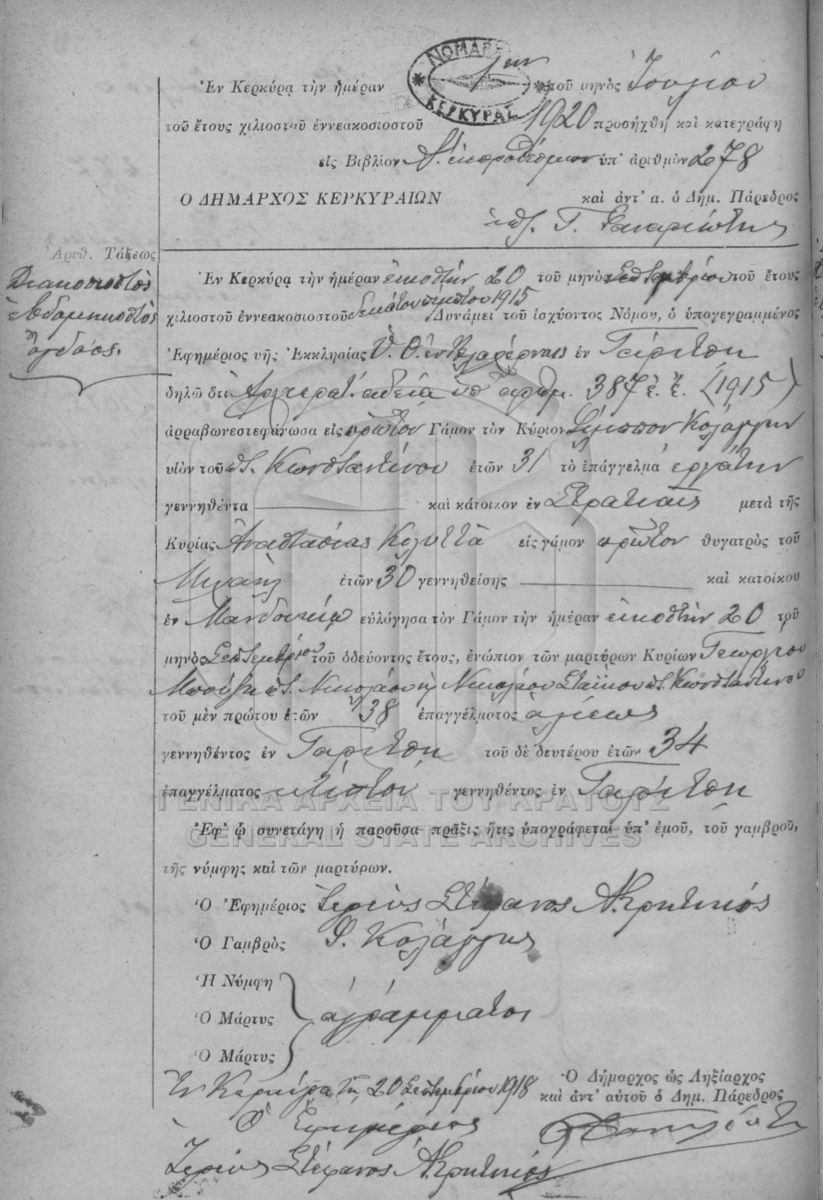 ΝΟΜΑΡΧ
ΚΕΡΚΥΡΑΣ
Ἐν Κερκύρᾳ τὴν ἡμέραν 1ην τοῦ μηνὸς Ἰουλίου
τοῦ ἔτους χιλιοστοῦ ἐννεακοσιοστοῦ 1920 προσήχθη καὶ κατεγράφη
εἰς Βιβλίον Α. ἐκπροθέσμων ὑπ' ἀριθμὸν 278
Ο ΔΗΜΑΡΧΟΣ ΚΕΡΚΥΡΑΙΩΝ καὶ ἀντ' α. ὁ Δημ. Πάρεδρος
Ἀριθ. Τάξεως
Διακοσιοστὸς
ἑβδομηκοστὸς
ὄγδοος.
Ἐν Κερκύρᾳ τὴν ἡμέραν εἰκοστὴν 20 τοῦ μηνὸς Σεπτεμβρίου τοῦ ἔτους
χιλιοστοῦ ἐννεακοσιοστοῦ δεκάτου πέμπτου 1915 Δυνάμει τοῦ ἰσχύοντος Νόμου, ὁ ὑπογεγραμμένος
Ἐφημέριος τῆς Ἐκκλησίας Ὑ. Θ. ἐν Βλαχέρναις ἐν Γαρίτσῃ
δηλῶ ὅτι Ἀρχιερατ. ἀδείᾳ ὑπ' ἀριθμ. 387 ἐ. ἔ. (1915)
ἀρραβωνεστεφάνωσα εἰς πρῶτον Γάμον τὸν Κύριον Φίλιππον Κολάγγην
υἱὸν τοῦ ποτ. Κωνσταντίνου ἐτῶν 31 τὸ ἐπάγγελμα ἐργάτην
γεννηθέντα καὶ κάτοικον ἐν Στρατιαῖς μετὰ τῆς
Κυρίας Ἀναστασίας Κολυττᾶ εἰς γάμον πρῶτον θυγατρὸς τοῦ
Μιχαὴλ ἐτῶν 30 γεννηθείσης καὶ κατοίκου
ἐν Μανδουκίῳ εὐλόγησα τὸν Γάμον τὴν ἡμέραν εἰκοστὴν 20 τοῦ
μηνὸς Σεπτεμβρίου τοῦ ὁδεύοντος ἔτους, ἐνώπιον τῶν μαρτύρων Κυρίων Γεωργίου
ποτ. Νικολάου ἢ Νικολάου Σταϊκου ποτ. Κωνσταντίνου
τοῦ μὲν πρώτου ἐτῶν 38 ἐπαγγέλματος ἁλιέως
γεννηθέντος ἐν Γαρίτσῃ τοῦ δὲ δευτέρου ἐτῶν 34
ἐπαγγέλματος κτίστου γεννηθέντος ἐν Γαρίτσῃ
ΓΕΝΙΚΑ ΑΡΧΕΙΑ ΤΟΥ ΚΡΑΤΟΥΣ
GENERAL STATE ARCHIVES
Ἐφ' ᾧ συνετάγη ἡ παροῦσα πρᾶξις ἥτις ὑπογράφεται ὑπ' ἐμοῦ, τοῦ γαμβροῦ,
τῆς νύμφης καὶ τῶν μαρτύρων.
Ὁ Ἐφημέριος Ἱερεὺς Στέφανος Α. Κρητικός
Ὁ Γαμβρὸς Φ. Κολάγγης
Ἡ Νύμφη
Ὁ Μάρτυς ἀγράμματοι
Ὁ Μάρτυς
Ἐν Κερκύρᾳ τῇ 20 Σεπτεμβρίου 1918
Ὁ Ἐφημέριος
Ἱερεὺς Στέφανος Α. Κρητικός
Ὁ Δήμαρχος ὡς Ληξίαρχος
καὶ ἀντ' αὐτοῦ ὁ Δημ. Πάρεδρος